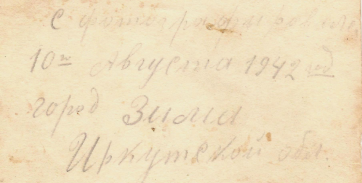 с фотографировались
10го Августа 1942 год
город Зима
Иркутской обл.